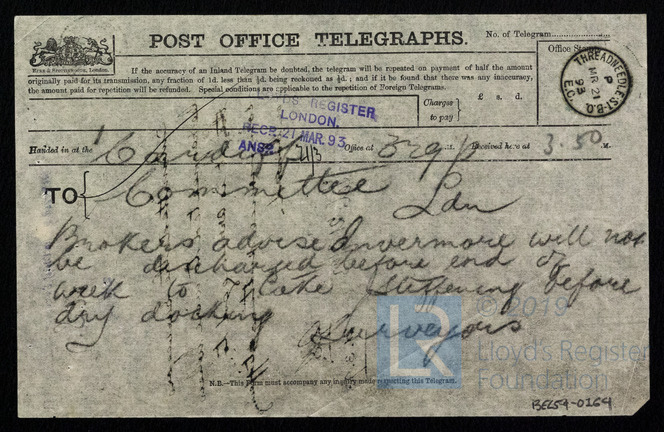 POST OFFICE TELEGRAPHS.
No. of Telegram
If the accuracy of an Inland Telegram be doubted, the telegram will be repeated on payment of half the amount
originally paid for its transmission, any fraction of 1d. less than ½d. being reckoned as ½d.; and if it be found that there was any inaccuracy,
the amount paid for repetition will be refunded. Special conditions are applicable to the repetition of Foreign Telegrams.
Office Stamp
THREADNEEDLE ST. B.O.
P
MR 21
93
E.C.
REGISTER
LONDON.
RECD. 21 MAR. 93
ANSD 21/3
Charges
to pay
£ s. d.
Handed in at the Cardiff Office at 3.29 p Received here at 3.50 M.
TO Committee Ldn
Brokers advise Invermore will not
be discharged before end of
week to take stiffening before
dry docking Surveyors
N.B.—This Form must accompany any inquiry made respecting this Telegram.
© 2019
LR
Lloyd's Register
Foundation
BE659-0164